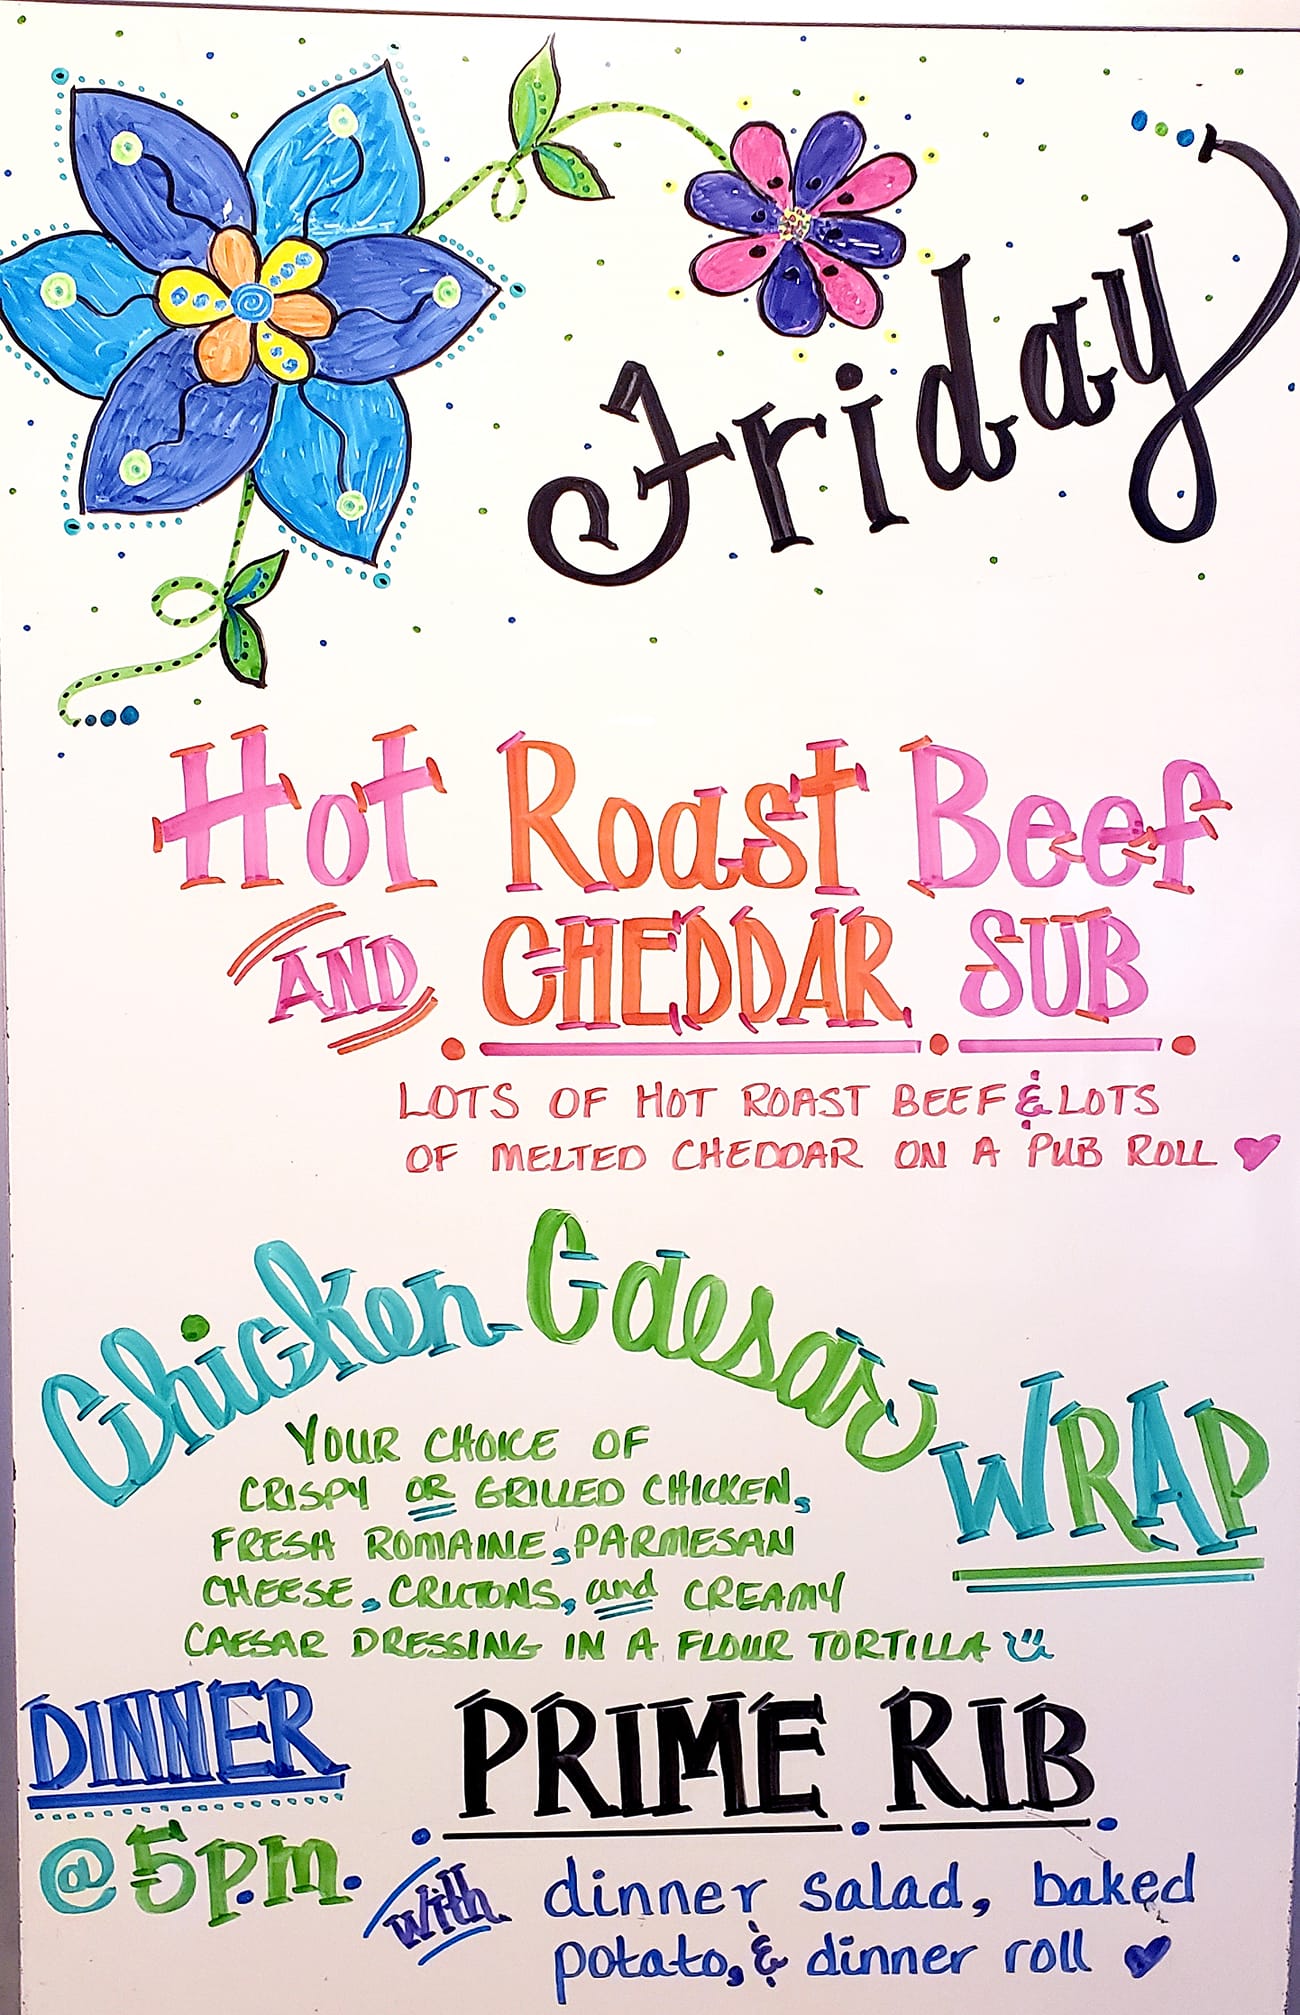 Friday
Hot Roast Beef
AND CHEDDAR SUB
LOTS OF HOT ROAST BEEF & LOTS
OF MELTED CHEDDAR ON A PUB ROLL
Chicken Caesar WRAP
YOUR CHOICE OF
CRISPY OR GRILLED CHICKEN,
FRESH ROMAINE, PARMESAN
CHEESE, CRUTONS, and CREAMY
CAESAR DRESSING IN A FLOUR TORTILLA
DINNER
@ 5 p.m.
PRIME RIB
with dinner salad, baked
potato, & dinner roll